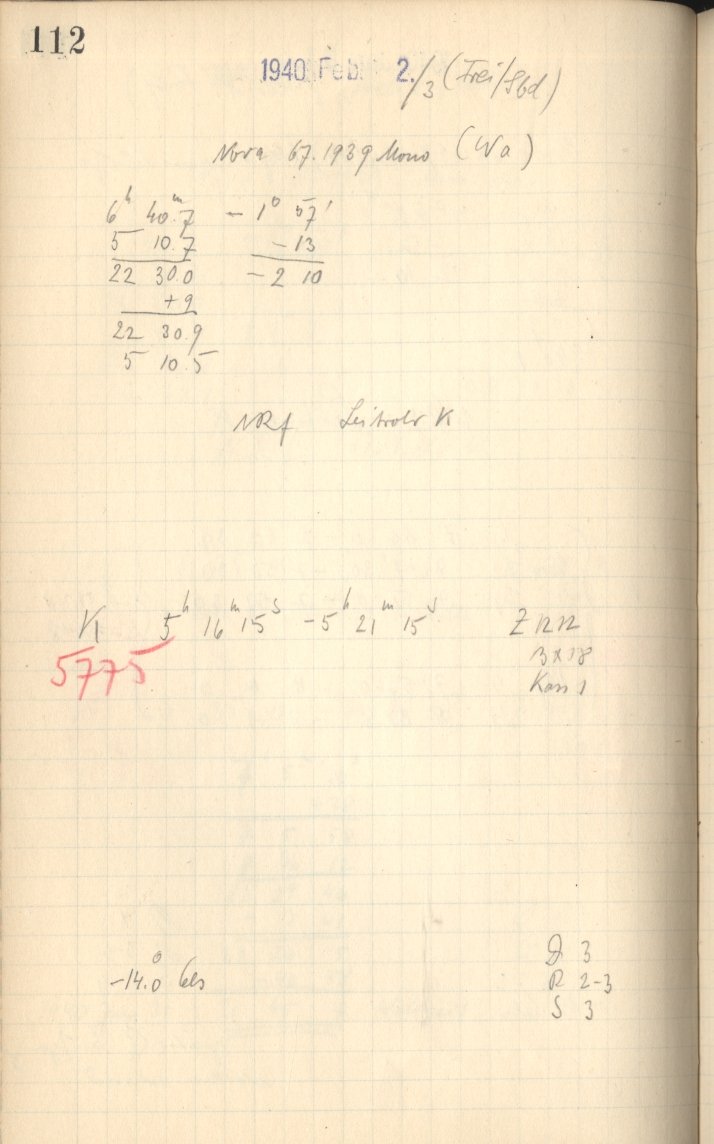 112
1940 Feb. 2./3 (Frei/Sbd)
Nova 67.1939 Mono (Wa)
6h 40m.7 - 1° 57'
5 10.7 - 13
22 30.0 - 2 10
+ 9
22 30.9
5 10.5
NRf Leitrohr K
K 5h 16m 15s - 5h 21m 15s
5775
Kass 1
-14.0° Cels
D 3
R 2-3
S 3